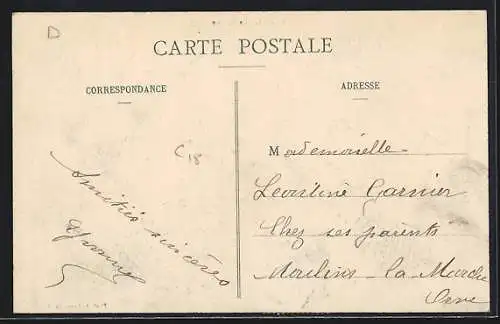 D
CARTE POSTALE
CORRESPONDANCE
ADRESSE
C 15
Amitiés sincères
Mademoiselle
Léontine Garnier
Chez ses parents
Moulins la Marche
Orne